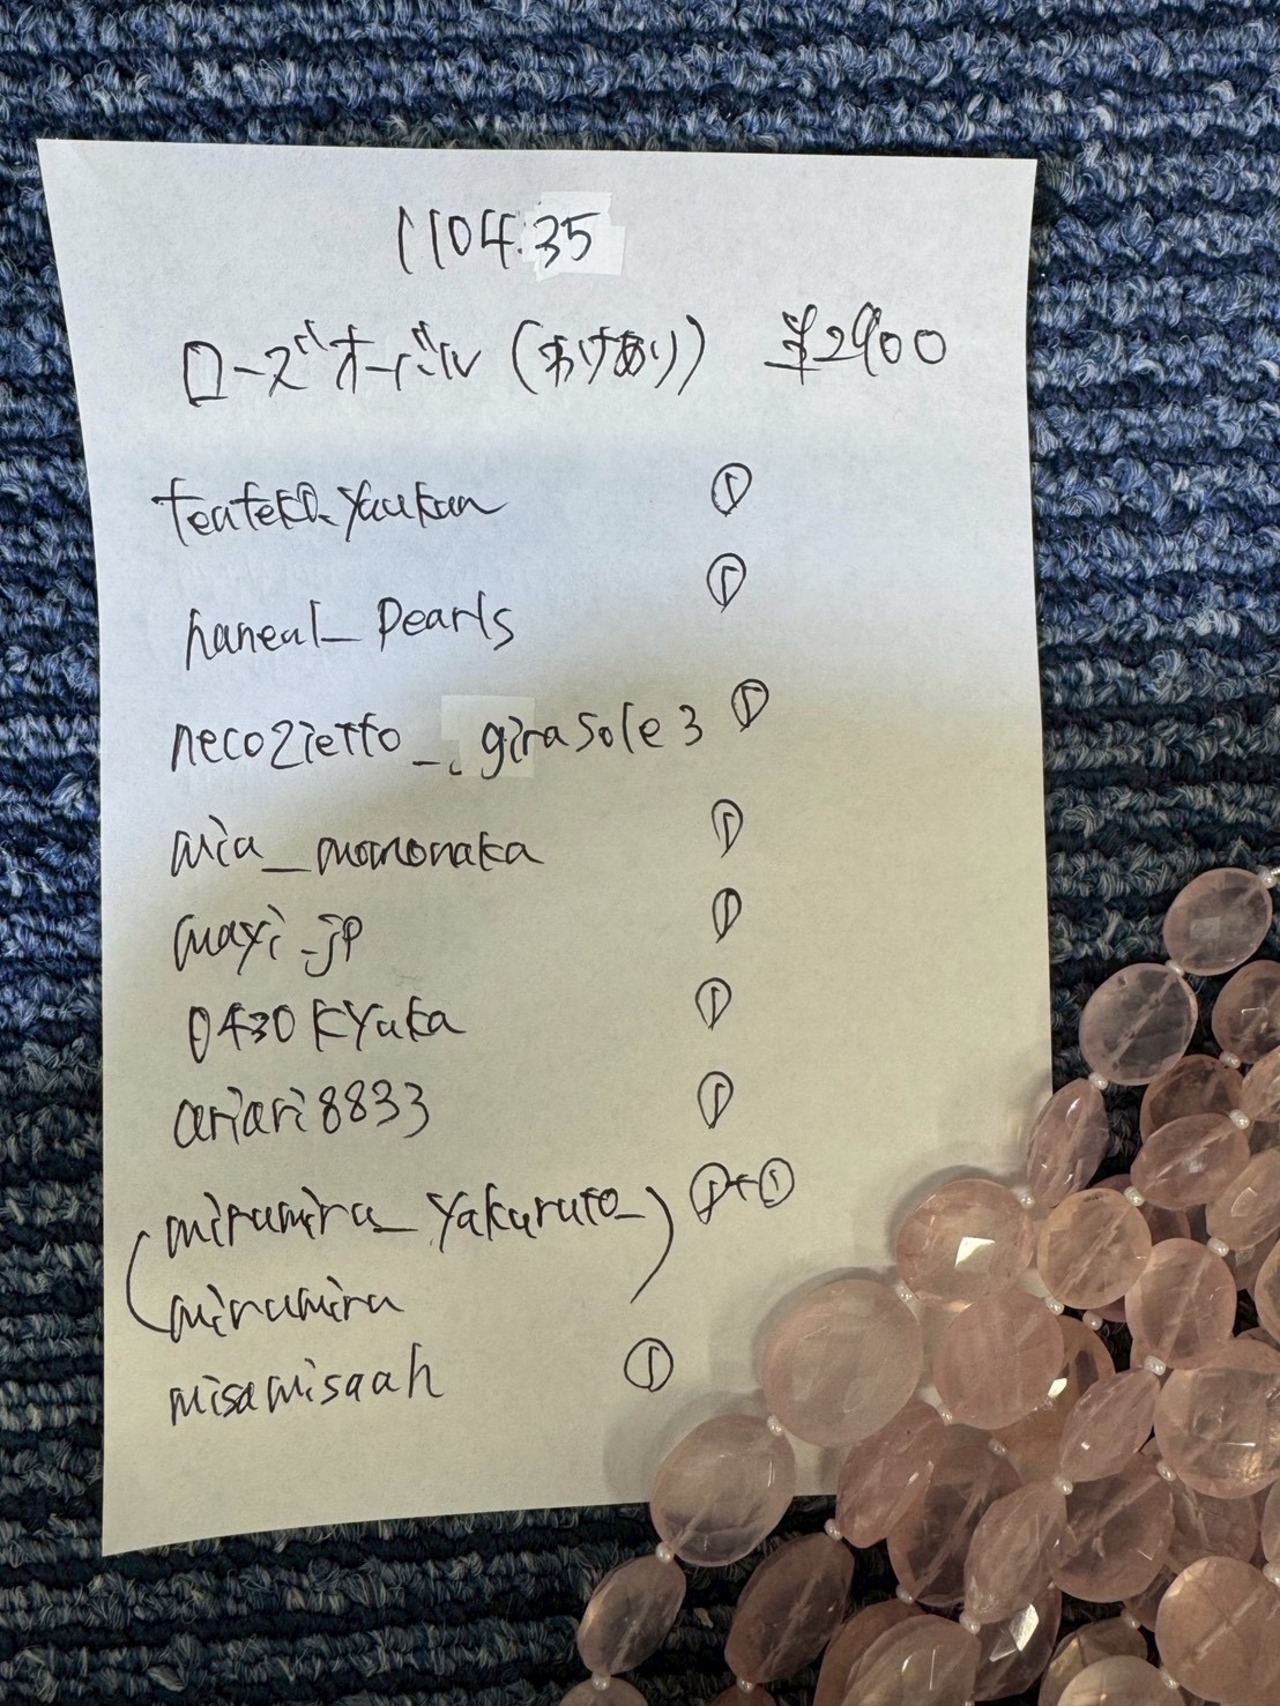 1104.35
ローズオーバル(わけあり) ¥2900
teateko_yuukun ①
haneul_pearls ①
necozietto_.girasole3 ①
mia_momonaka ①
mayi_jp ①
0430kyuka ①
ariari8833 ①
(miramira_yakuruto_) ①+①
miramira
misamisaah ①